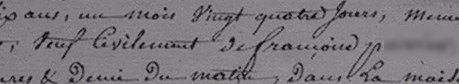 ix ans, un mois Vingt quatre Jours, Meun
, Veuf Civilement de framond
res & Demie Du matin, Dans La mais